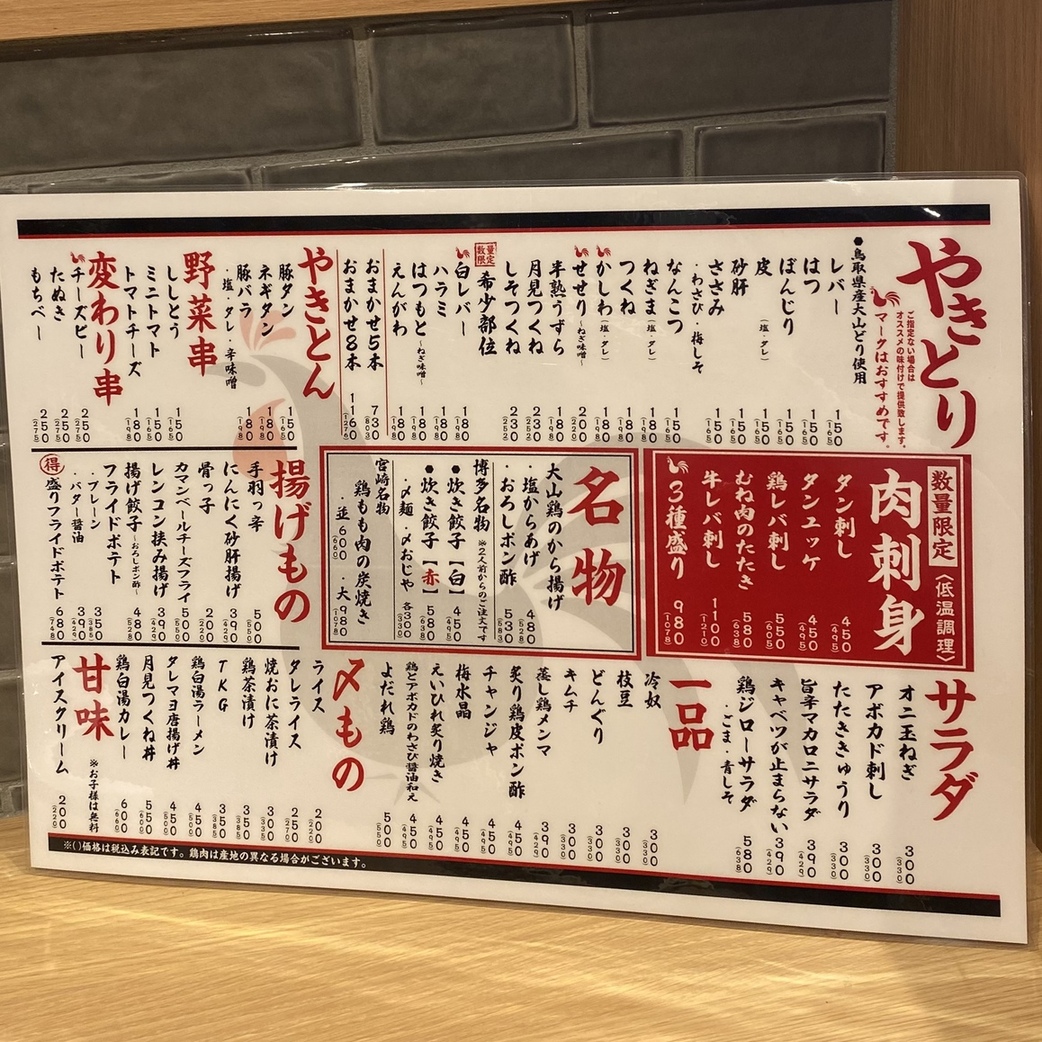 やきとり
ご指定ない場合は
オススメの味付けで提供致します。
マークはおすすめです。
●鳥取県産大山どり使用
レバー 150 (165)
はつ 150 (165)
ぼんじり 150 (165)
皮(塩・タレ) 150 (165)
砂肝 150 (165)
ささみ 150 (165)
・わさび・梅しそ 180 (198)
なんこつ 150 (165)
ねぎま(塩・タレ) 180 (198)
つくね 180 (198)
かしわ(塩・タレ) 180 (198)
せせり~ねぎ味噌~ 200 (220)
半熟うずら 180 (198)
月見つくね 230
しそつくね 230
数量限定 希少部位
白レバー 180 (198)
ハラミ 180 (198)
はつもと~ねぎ味噌~ 180 (198)
えんがわ 180 (198)
おまかせ5本 730 (803)
おまかせ8本 1160 (1276)
やきとん
豚タン 150 (165)
ネギタン 180 (198)
豚バラ 180 (198)
・塩・タレ・辛味噌
野菜串
ししとう 150 (165)
ミニトマト 150 (165)
トマトチーズ 180 (198)
変わり串
チーズピー 250 (275)
たぬき 250 (275)
もちベー 250 (275)
数量限定
〈低温調理〉
肉刺身
タン刺し 450 (495)
タンユッケ 450 (495)
鶏レバ刺し 550 (605)
むね肉のたたき 580 (638)
牛レバ刺し 1100 (1210)
3種盛り 980 (1078)
名物
大山鶏のから揚げ
・塩からあげ 480 (528)
・おろしポン酢 530 (583)
博多名物 ※2人前からのご注文です
●炊き餃子【白】 450 (495)
●炊き餃子【赤】 580 (638)
・〆麺・〆おじや 各300 (330)
宮崎名物
鶏もも肉の炭焼き
・並600 (660) ・大980 (1078)
揚げもの
手羽っ辛 500 (550)
にんにく砂肝揚げ 390 (429)
骨っ子 200 (220)
カマンベールチーズフライ 500 (550)
レンコン挟み揚げ 390 (429)
揚げ餃子~おろしポン酢~ 480 (528)
フライドポテト
・プレーン 350 (385)
・バター醤油 390 (429)
得盛りフライドポテト 680 (748)
サラダ
オニ玉ねぎ 300 (330)
アボカド刺し 300 (330)
たたききゅうり 300 (330)
旨辛マカロニサラダ 390 (429)
キャベツが止まらない 390 (429)
鶏ジローサラダ 580 (638)
・ごま・青しそ
一品
冷奴 300 (330)
枝豆 300 (330)
どんぐり 300 (330)
キムチ 300 (330)
蒸し鶏メンマ 390 (429)
炙り鶏皮ポン酢 450 (495)
チャンジャ 450 (495)
梅水晶 450 (495)
えいひれ炙り焼き 450 (495)
鶏とアボカドのわさび醤油和え 450 (495)
よだれ鶏 500 (550)
〆もの
ライス 200 (220)
タレライス 250 (270)
焼おに茶漬け 300 (330)
鶏茶漬け 350 (385)
TKG 350 (385)
鶏白湯ラーメン 450 (495)
タレマヨ唐揚げ丼 450 (495)
月見つくね丼 550 (600)
鶏白湯カレー 600 (660)
甘味
※お子様は無料
アイスクリーム 200 (220)
※()価格は税込み表記です。鶏肉は産地の異なる場合がございます。